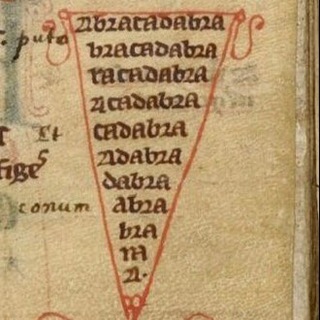 Abracadabra
bracadabra
racadabra
acadabra
cadabra
adabra
dabra
abra
bra
ra
a.
puto
Et
fige
conum